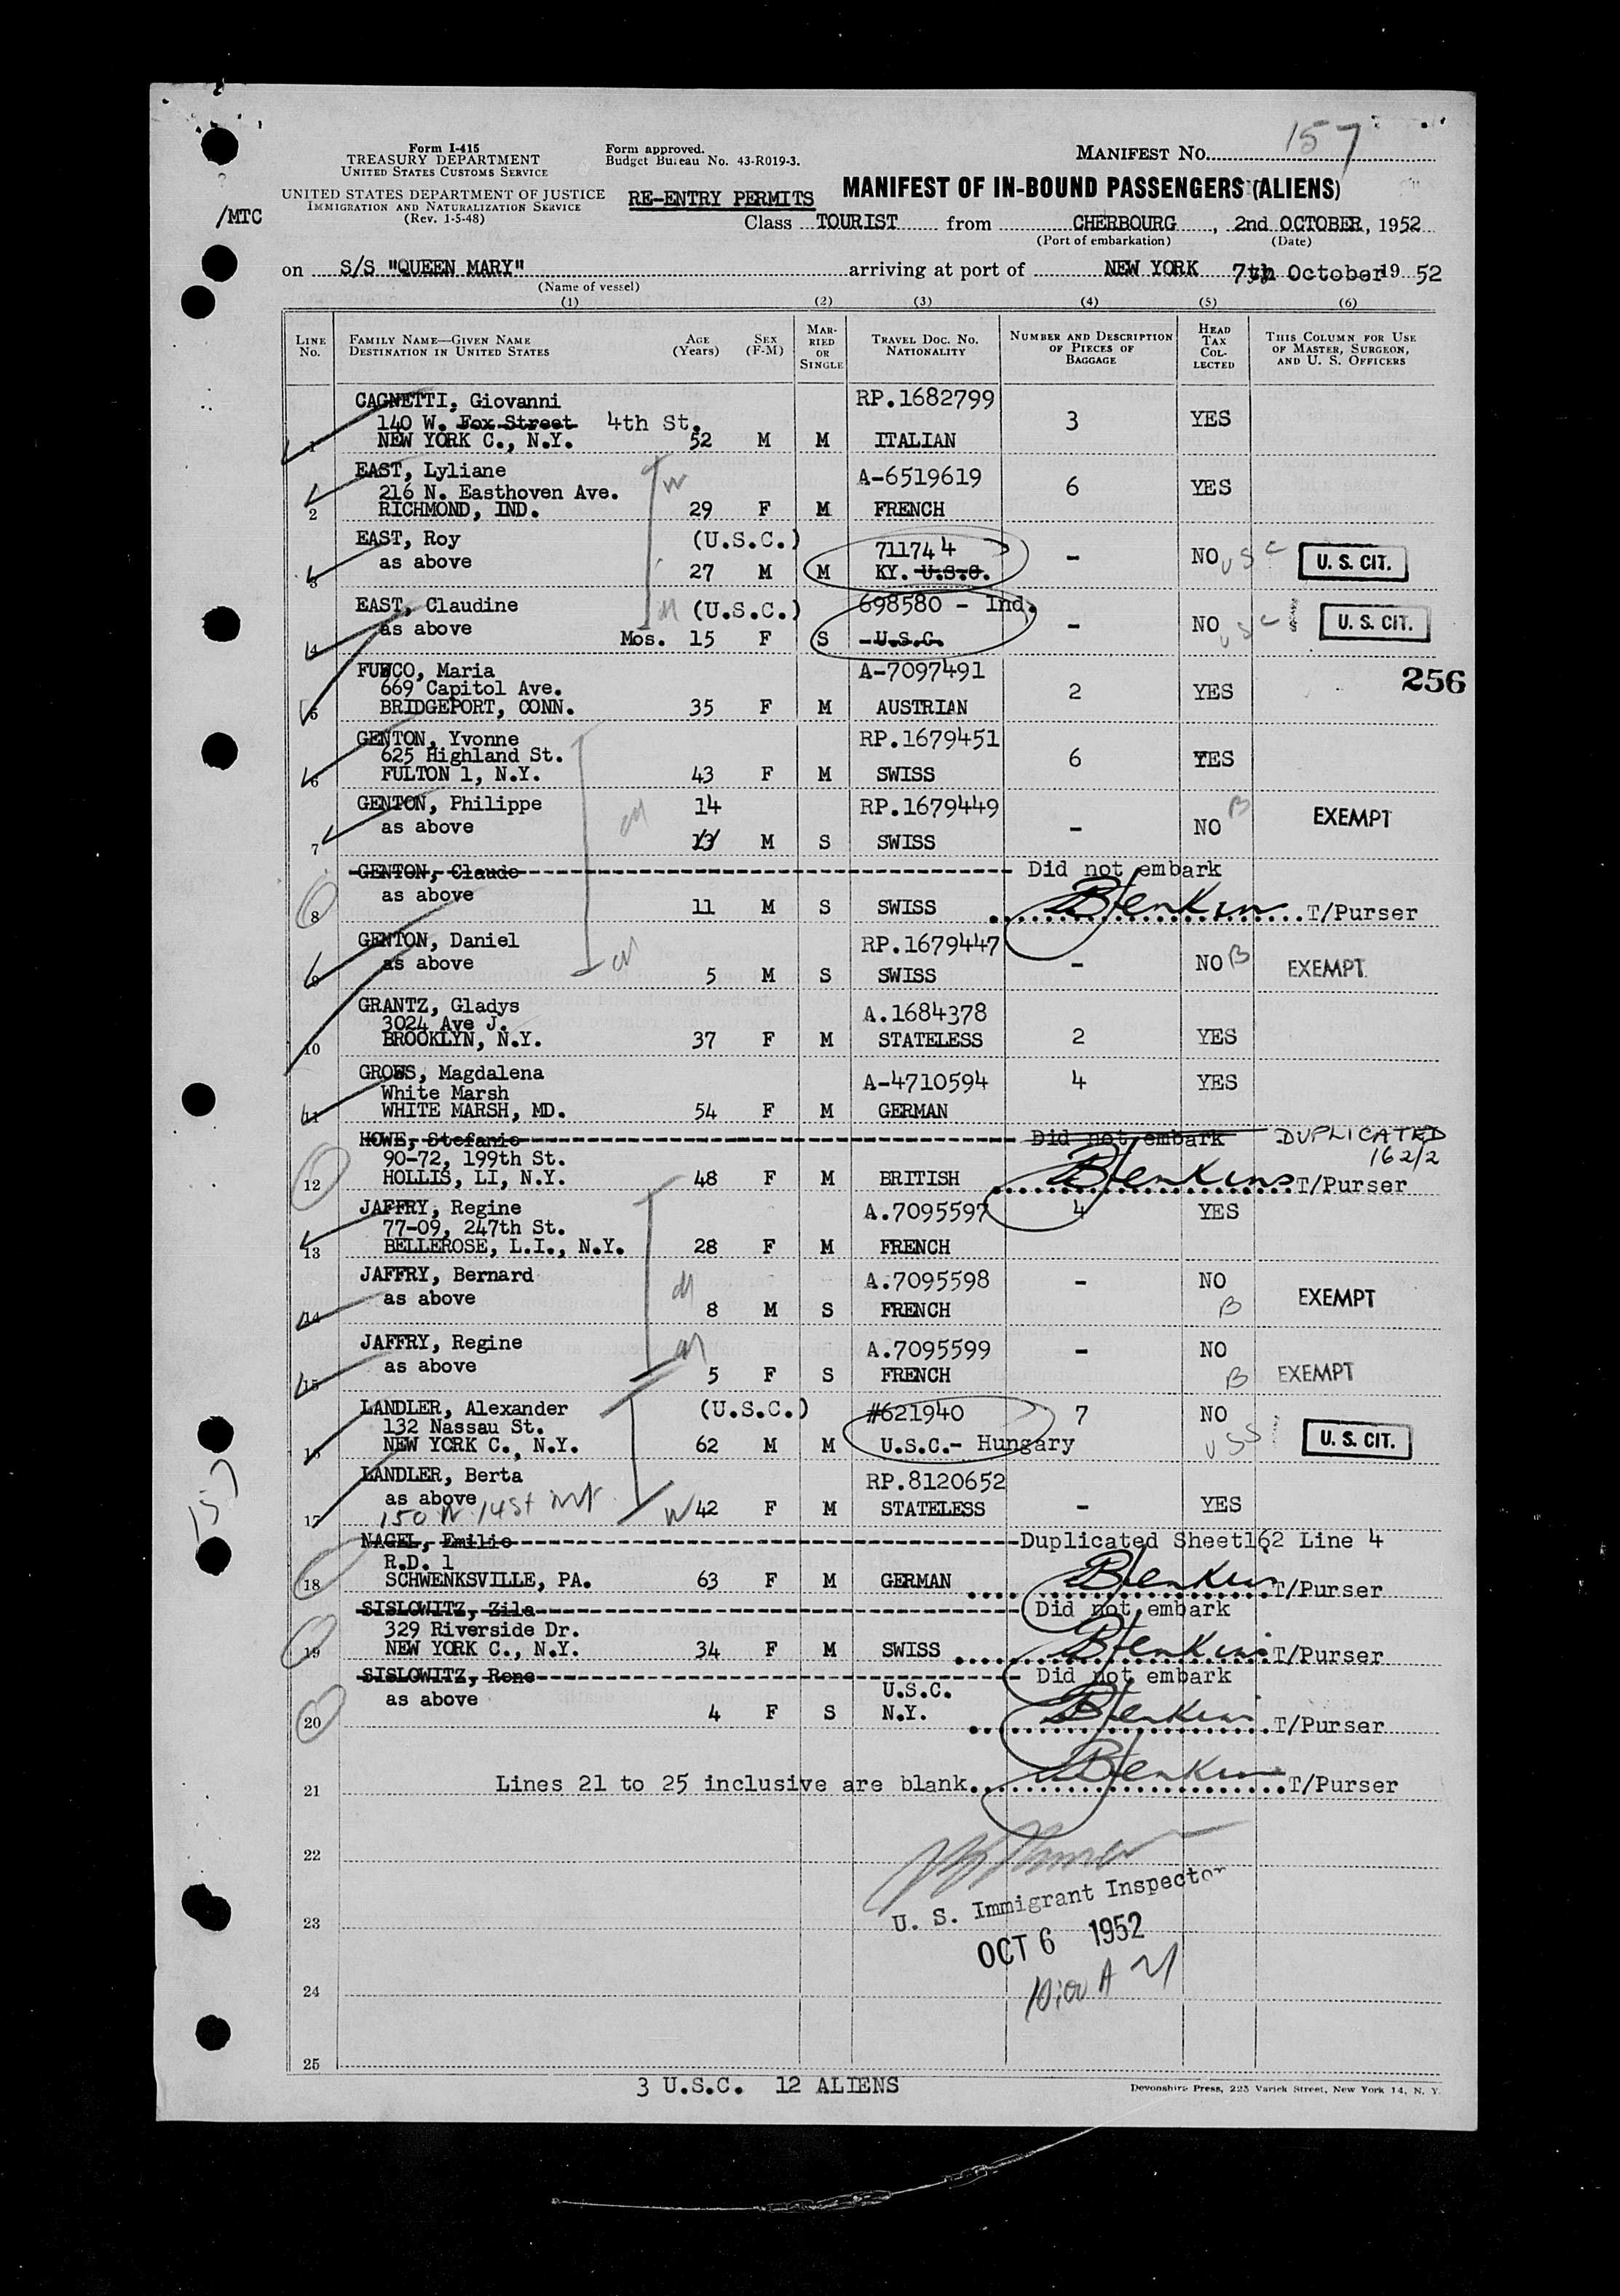 157
Form I-415
TREASURY DEPARTMENT
UNITED STATES CUSTOMS SERVICE
Form approved.
Budget Bureau No. 43-R019-3.
MANIFEST NO.
UNITED STATES DEPARTMENT OF JUSTICE
IMMIGRATION AND NATURALIZATION SERVICE
(Rev. 1-5-48)
/MTC
RE-ENTRY PERMITS
MANIFEST OF IN-BOUND PASSENGERS (ALIENS)
Class TOURIST from CHERBOURG, 2nd OCTOBER, 1952
(Port of embarkation) (Date)
on S/S "QUEEN MARY" arriving at port of NEW YORK 7th October 19 52
(Name of vessel)
(1) (2) (3) (4) (5) (6)
LINE No. FAMILY NAME—GIVEN NAME DESTINATION IN UNITED STATES AGE (Years) SEX (F-M) MARRIED OR SINGLE TRAVEL DOC. NO. NATIONALITY NUMBER AND DESCRIPTION OF PIECES OF BAGGAGE HEAD TAX COLLECTED THIS COLUMN FOR USE OF MASTER, SURGEON, AND U. S. OFFICERS
CAGNETTI, Giovanni RP.1682799
140 W. Fox Street 4th St. 3 YES
1 NEW YORK C., N.Y. 52 M M ITALIAN
EAST, Lyliane A-6519619
216 N. Easthoven Ave. W 6 YES
2 RICHMOND, IND. 29 F M FRENCH
EAST, Roy (U.S.C.) 711744
3 as above 27 M M KY. U.S.C. - NO USC U. S. CIT.
EAST, Claudine (U.S.C.) 698580 - Ind.
4 as above Mos. 15 F S U.S.C. - NO USC U. S. CIT.
FUNCO, Maria A-7097491 256
669 Capitol Ave. 2 YES
5 BRIDGEPORT, CONN. 35 F M AUSTRIAN
GENTON, Yvonne RP.1679451
625 Highland St. 6 YES
6 FULTON 1, N.Y. 43 F M SWISS
GENTON, Philippe 14 RP.1679449 B EXEMPT
7 as above 13 M S SWISS - NO
GENTON, Claude Did not embark
8 as above 11 M S SWISS T/Purser
GENTON, Daniel RP.1679447
9 as above 5 M S SWISS - NO B EXEMPT
GRANTZ, Gladys A.1684378
3024 Ave J.
10 BROOKLYN, N.Y. 37 F M STATELESS 2 YES
GROWS, Magdalena A-4710594 4 YES
White Marsh
11 WHITE MARSH, MD. 54 F M GERMAN
HOWE, Stefanie Did not embark DUPLICATED
90-72, 199th St. 162/2
12 HOLLIS, LI, N.Y. 48 F M BRITISH T/Purser
JAFFRY, Regine A.7095597 4 YES
77-09, 247th St.
13 BELLEROSE, L.I., N.Y. 28 F M FRENCH
JAFFRY, Bernard A.7095598 - NO
14 as above 8 M S FRENCH B EXEMPT
JAFFRY, Regine A.7095599 - NO
15 as above 5 F S FRENCH B EXEMPT
LANDLER, Alexander (U.S.C.) #621940 7 NO
132 Nassau St.
16 NEW YORK C., N.Y. 62 M M U.S.C.- Hungary U. S. CIT.
LANDLER, Berta RP.8120652
as above
17 150 W. 14St W 42 F M STATELESS - YES
NAGEL, Emilie Duplicated Sheet162 Line 4
R.D. 1
18 SCHWENKSVILLE, PA. 63 F M GERMAN T/Purser
SISLOWITZ, Zila Did not embark
329 Riverside Dr.
19 NEW YORK C., N.Y. 34 F M SWISS T/Purser
SISLOWITZ, Rene Did not embark
as above U.S.C.
20 4 F S N.Y. T/Purser
21 Lines 21 to 25 inclusive are blank. T/Purser
22
U. S. Immigrant Inspector
23
OCT 6 1952
24
25
3 U.S.C. 12 ALIENS
Devonshire Press, 225 Varick Street, New York 14, N. Y.
157